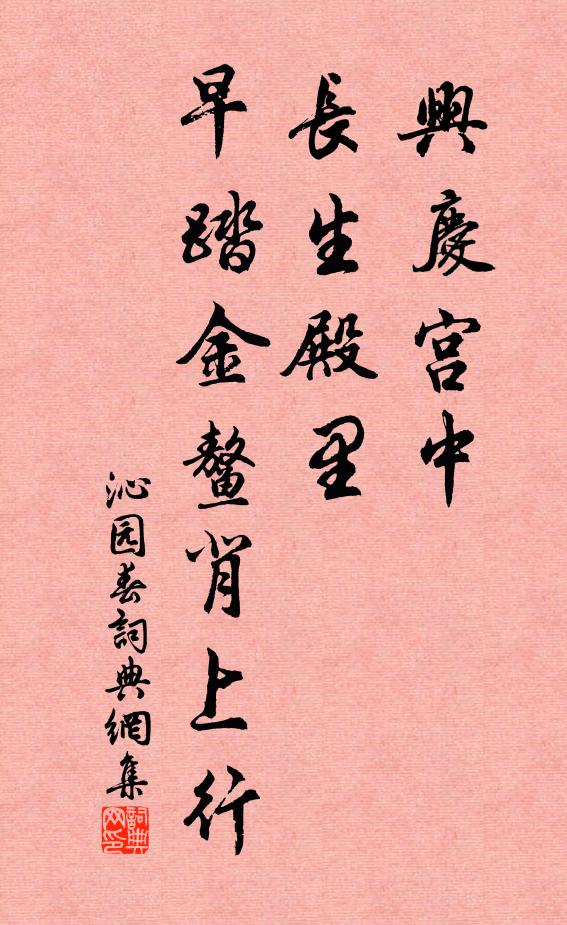 興慶宫中
長生殿里
早踏金鳌背上行
沁园春詞典網集
詞典网印